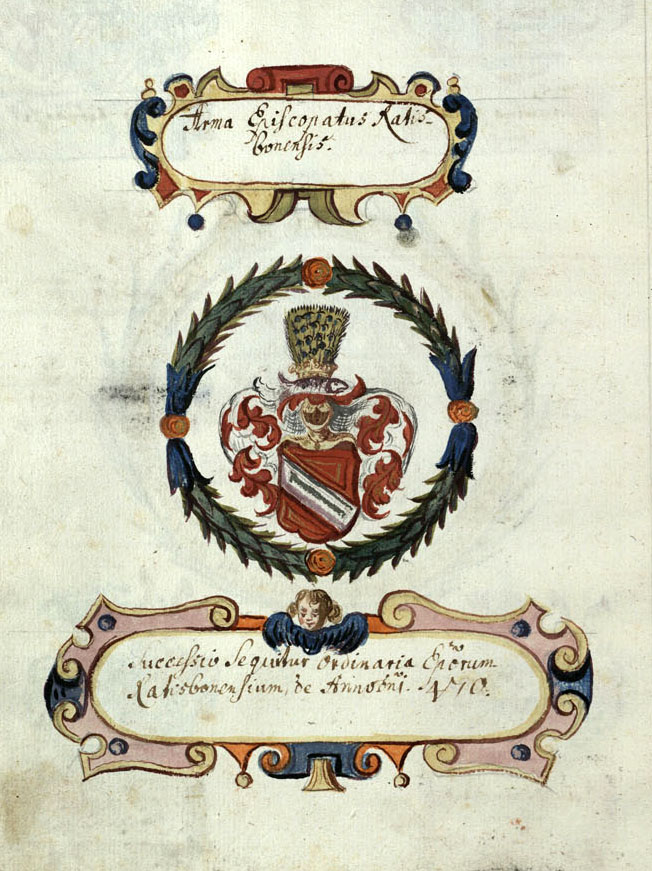 Arma Episcopatus Ratis-
bonensis.
Successio Sequitur Ordinaria Epõrum
Ratisbonensium, de Anno Dñi. 470.